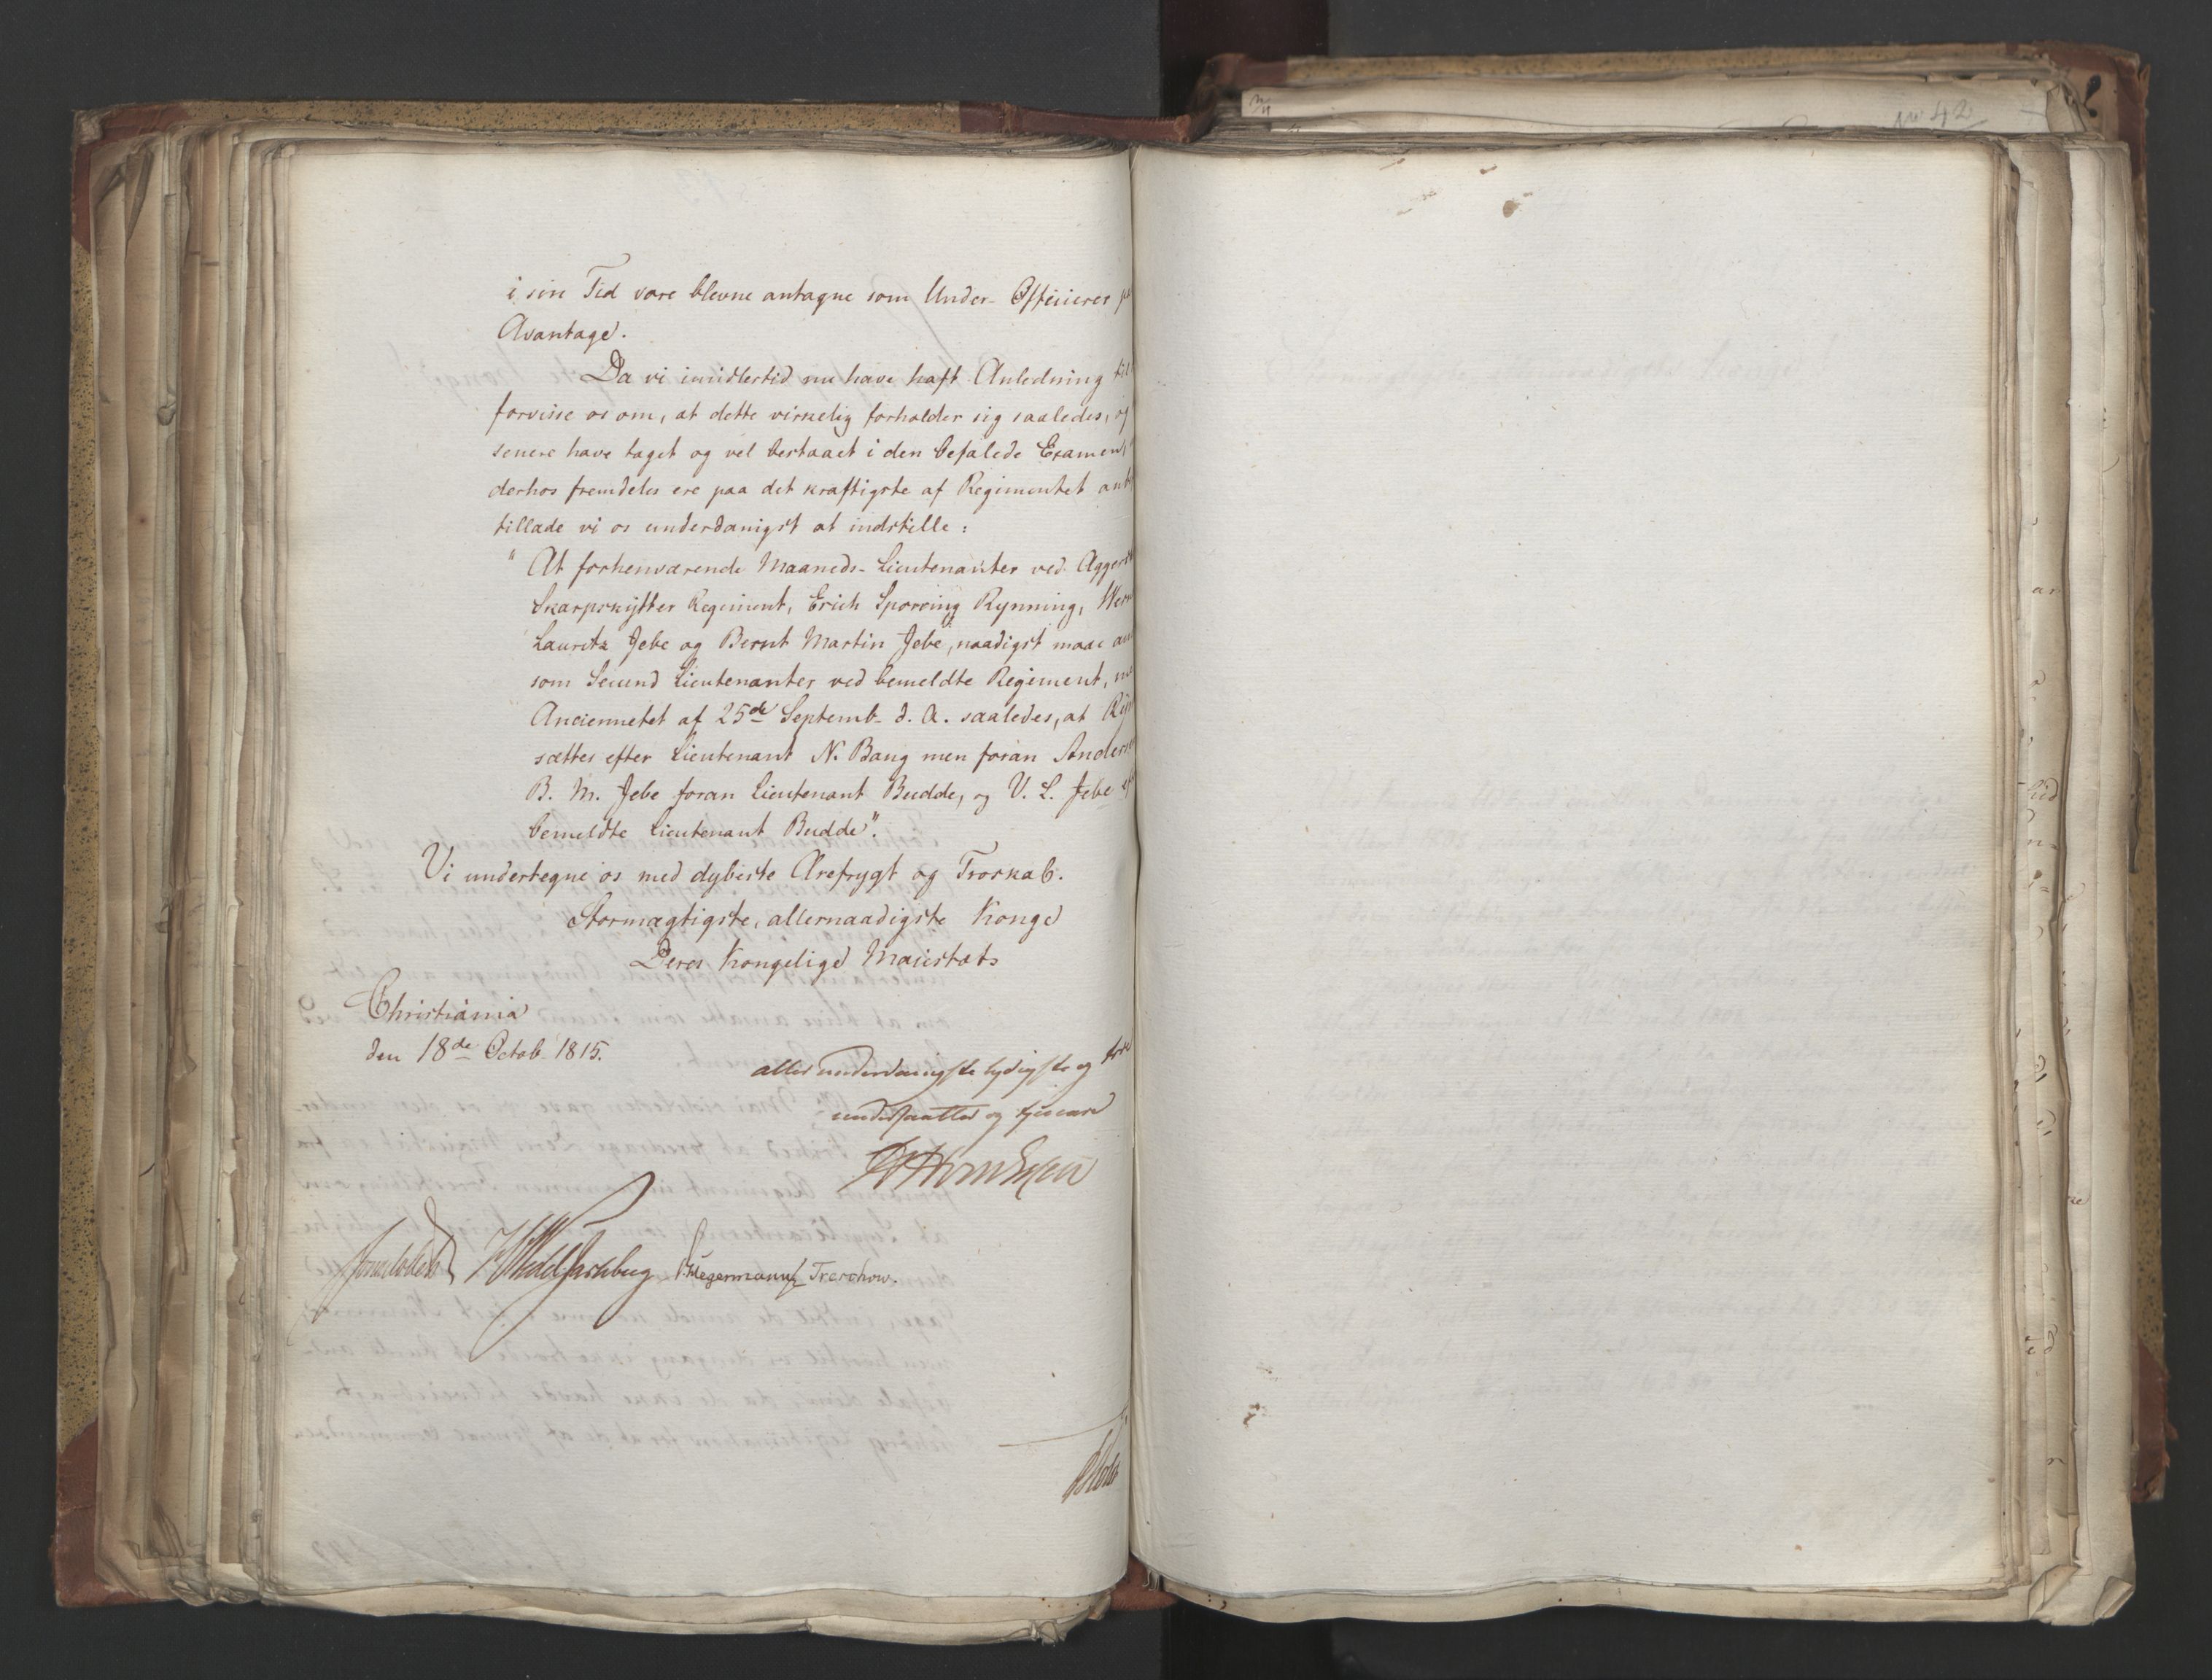 No 42
i sin Tid vare blevne antagne som Under-Officierer
Avantage.
Da vi imidlertid nu have haft Anledning til
forvisse os om, at dette virkelig forholder sig saaledes, og
senere have taget og vel bestaaet i den befalede Examen,
derhos fremdeles ere paa det kraftigste af Regimentet anb
tillade vi os underdanigst at indstille:
" At forhenværende Maaneds-Lieutenanter ved Aggers
Skarpskytter Regiment, Erich Sporring Rynning, Wer
Lauritz Jebe og Bernt Martin Jebe, naadigst maae an
som Secund Lieutenanter ved bemeldte Regiment, me
Anciennetet af 25de Septemb. d. A. saaledes, at Ryn
sættes efter Lieutenant N. Bang men foran Anders
B. M. Jebe foran Lieutenant Budde, og V. L. Jebe ef
bemeldte Lieutenant Budde".
Vi undertegne os med dybeste Ærefrygt og Troskab.
Stormægtigste, allernaadigste Konge
Deres Kongelige Maiestæts
Christiania
den 18de Octob. 1815.
allerunderdanigste lydigste og tro
undersaatter og tjenere
Sommerhielm Wedel Jarlsberg D. Hegermann Treschow.